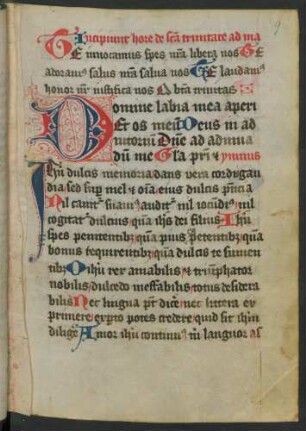 Incipiunt hore de scā trinitate ad ma
TE invocamus spes nr̄a libera nos TE
adoram⁹ salus nr̄a salva nos TE laudam⁹
honor nr̄ iustifica nos O bt̄a trinitas
Domine labia mea aperi
Et os meū Deus in ad
iutoriū Dn̄e ad adiuua
dū me Gla pr̄i et ymnus
Ihū dulcis memoria dans vera cordi gau
dia sed sup mel et oīa eius dulcis pn̄cia
Nil canit suaui⁹ audit nil iocūdi⁹ nil
cogitat dulcius quā ihs dei filius Ihū
spes penitentibꝫ quā pius petentibꝫ quā
bonus te querentibꝫ quā dulcis te sumen
tibꝫ O ihū rex amabilis et triūphator
nobilis dulcedo ineffabilis totus desidera
bilis Nec lingua pt̄ dice nec littera ex
primere expto potes credere quid sit ihm̄
diligē Amor ihū continuus m̄ languor as